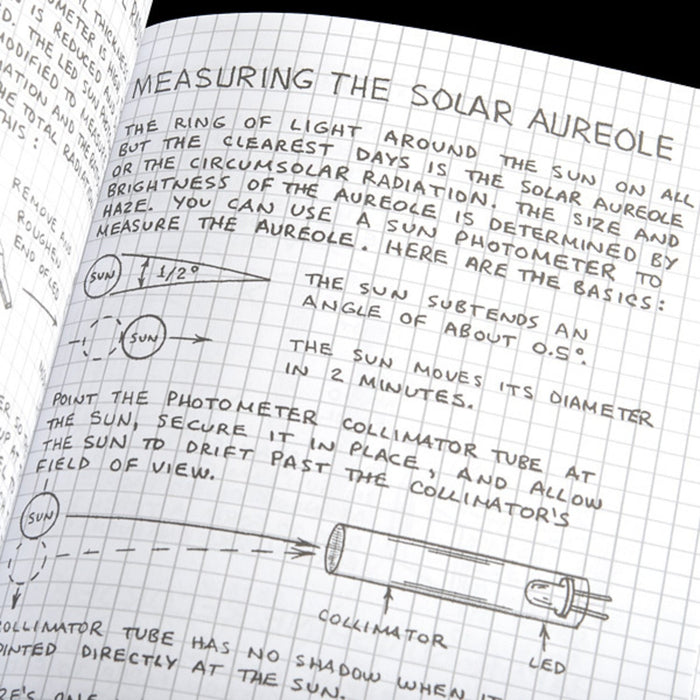 METER IS
IS REDUCED
THE LED SUN
MODIFIED TO MEAS
ATION AND THE
THE TOTAL RADIA
THIS:
REMOVE AND
ROUGHEN
END OF LED
MEASURING THE SOLAR AUREOLE
THE RING OF LIGHT AROUND THE SUN ON ALL
BUT THE CLEAREST DAYS IS THE SOLAR AUREOLE
OR THE CIRCUMSOLAR RADIATION. THE SIZE AND
BRIGHTNESS OF THE AUREOLE IS DETERMINED BY
HAZE. YOU CAN USE A SUN PHOTOMETER TO
MEASURE THE AUREOLE. HERE ARE THE BASICS:
SUN 1/2°
THE SUN SUBTENDS AN
ANGLE OF ABOUT 0.5°.
SUN
THE SUN MOVES ITS DIAMETER
IN 2 MINUTES.
POINT THE PHOTOMETER COLLIMATOR TUBE AT
THE SUN, SECURE IT IN PLACE, AND ALLOW
THE SUN TO DRIFT PAST THE COLLIMATOR'S
FIELD OF VIEW.
SUN
COLLIMATOR
LED
OLLIMATOR TUBE HAS NO SHADOW WHEN IT
OINTED DIRECTLY AT THE SUN.